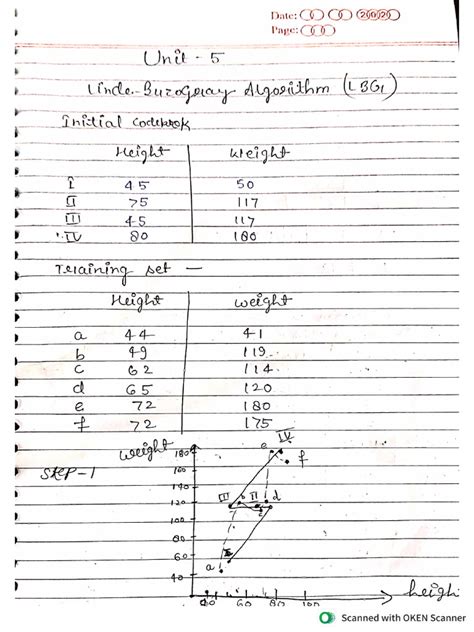 Date: 2020
Page:
Unit - 5
Linde-Buzo Gray Algorithm (LBG)
Initial Codebook
Height Weight
I 45 50
II 75 117
III 45 117
IV 80 180
Training set —
Height weight
a 44 41
b 49 119
c 62 114
d 65 120
e 72 180
f 72 175
weight
STEP-1
180 e IV f
160
140
120 III b II d
100 c
80
60 I
40 a
40 60 80 100 heigh
Scanned with OKEN Scanner